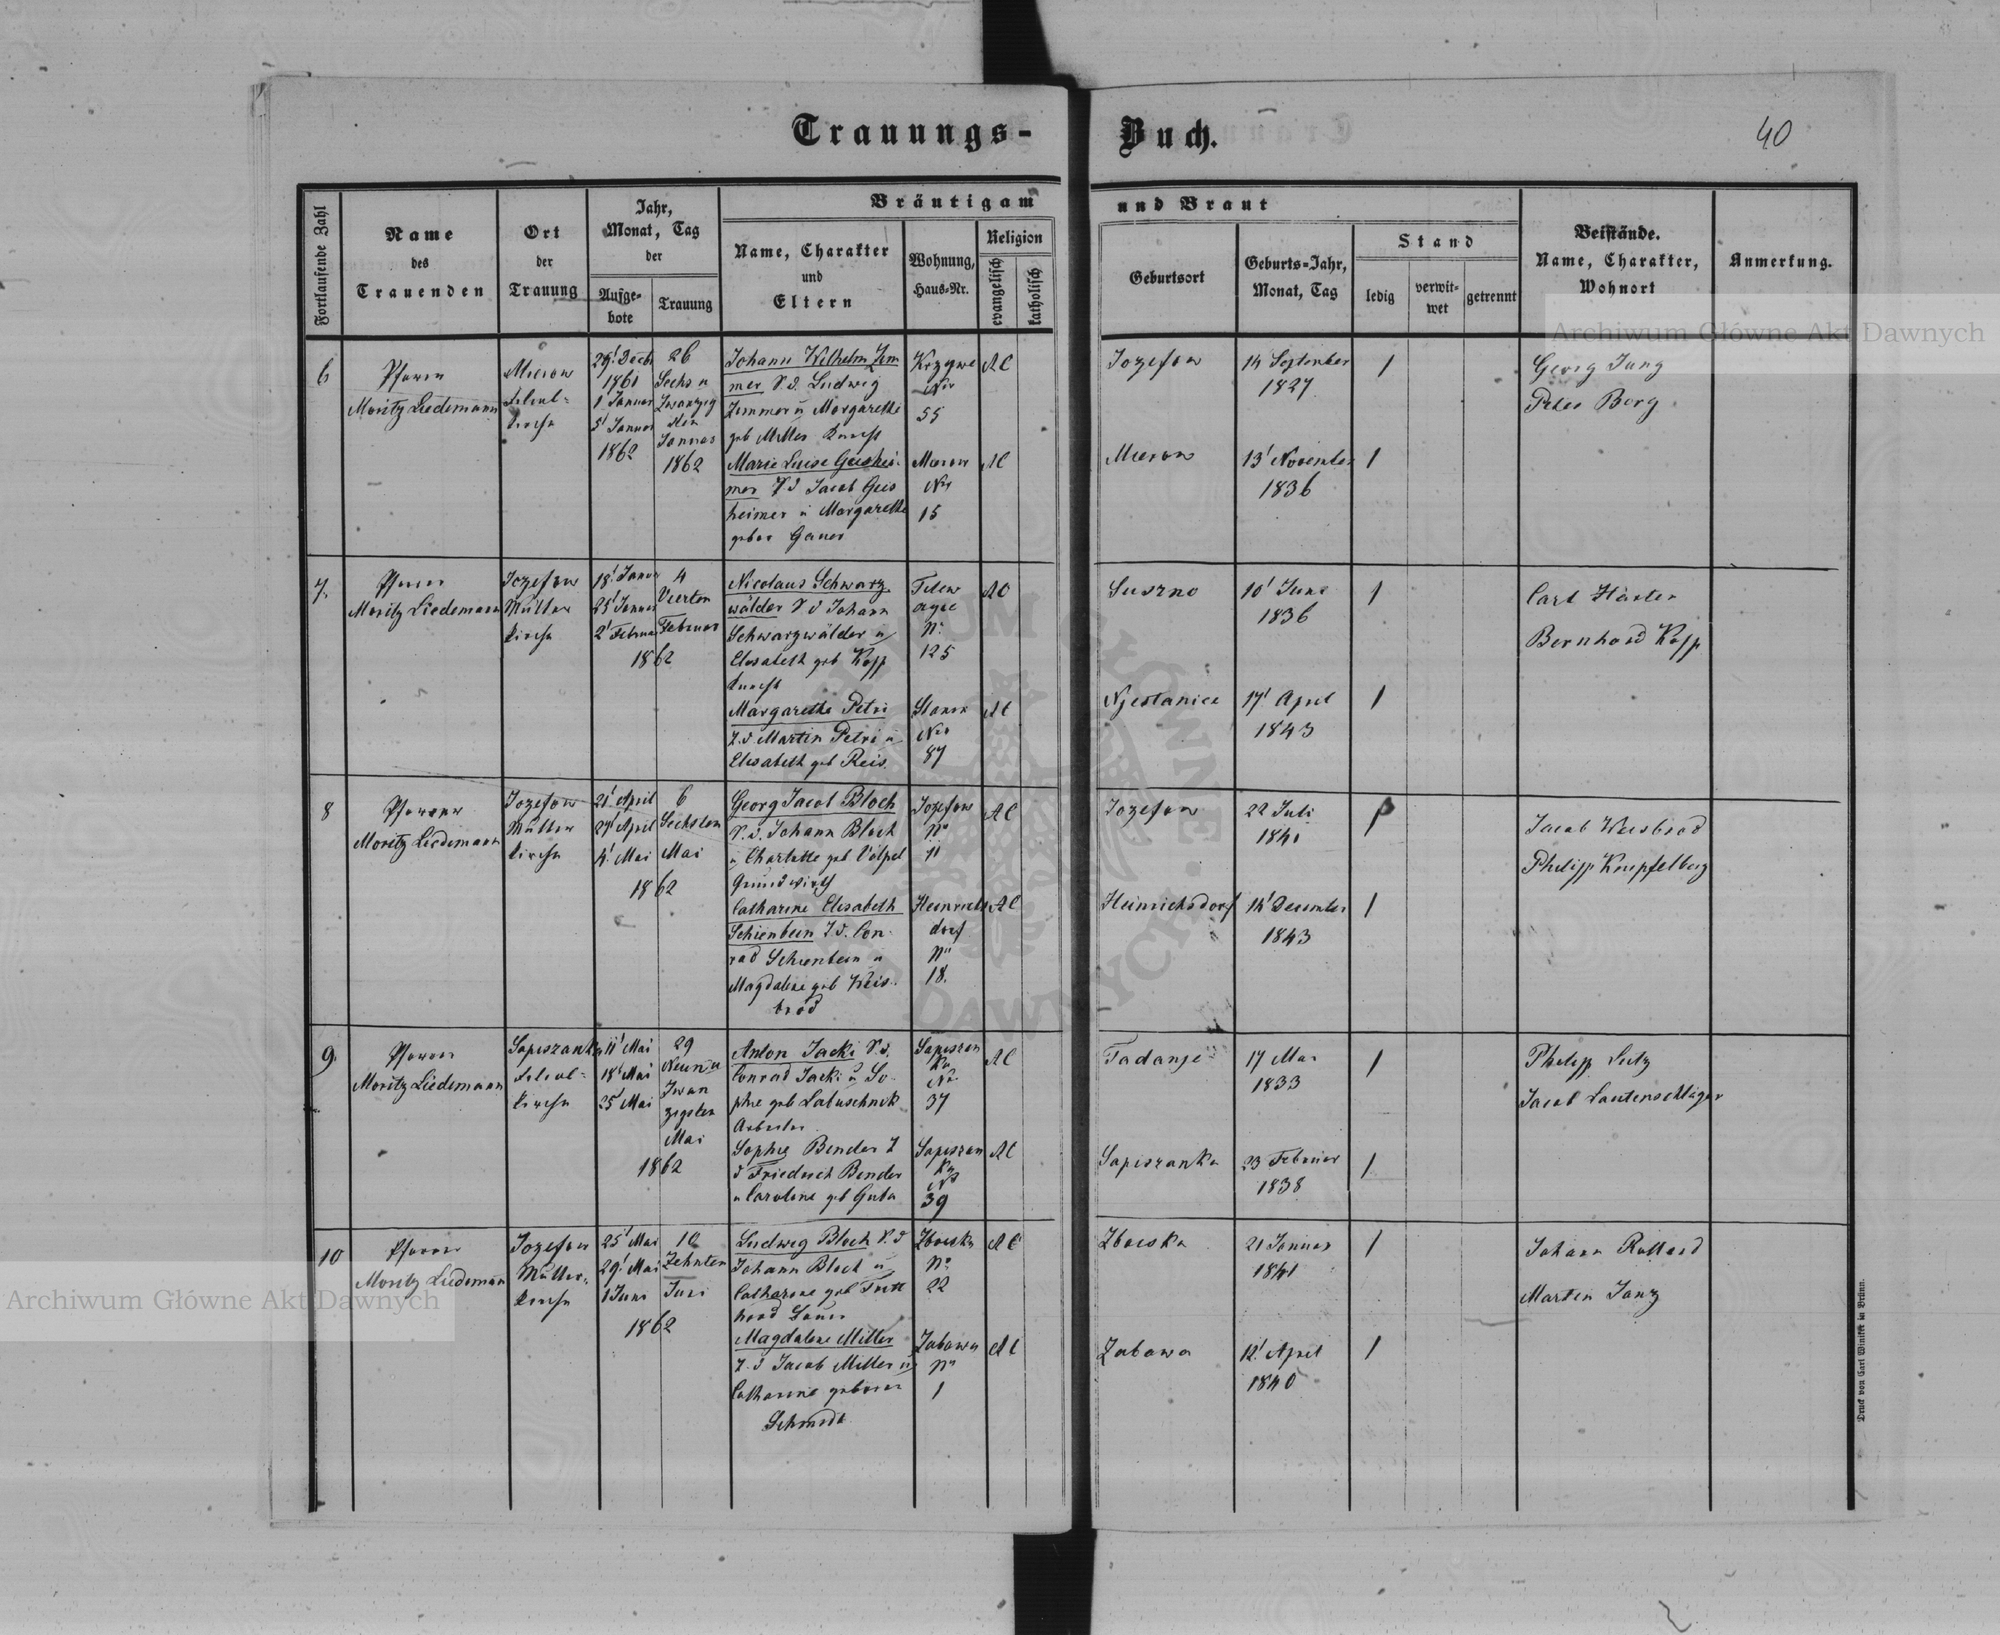 Trauungs-Buch.
40
Fortlaufende Zahl
Name
des
Trauenden
Ort
der
Trauung
Jahr,
Monat, Tag
der
Aufge-
bote
Trauung
Bräutigam und Braut
Name, Charakter
und
Eltern
Wohnung,
Haus-Nr.
Religion
evangelisch
katholisch
Geburtsort
Geburts-Jahr,
Monat, Tag
Stand
ledig
verwit-
wet
getrennt
Beistände.
Name, Charakter,
Wohnort
Anmerkung.
6
Pfarrer
Moritz Liedemann
Mierow
Filial-
kirche
29' Decbr
1861
1 Januar
5' Januar
1862
26
Sechs u
Zwanzig
sten
Januar
1862
Johann Wilhelm Zim
mer S. d. Ludwig
Zimmer u Margarethe
geb Miller
Nro
55
AC
Jozefow
14 September
1827
1
Georg Jung
Peter Berg
Marie Luise Geishei
mer T d Jacob Geis
heimer u Margarethe
Gauer
Mierow
Nro
15
AC
Mierow
13' November
1836
1
7.
Pfarrer
Moritz Liedemann
Jozefow
Mutter
kirche
18' Januar
25' Januar
2' Februar
4
Vierten
Februar
1862
Nicolaus Schwarz
wälder S d Johann
Schwarzwälder u
Elisabeth geb Kopp
No
125
AC
Suszno
10' Juni
1836
1
Carl Härter
Bernhard Kopp
Margaretha Petri
T. d Martin Petri u
Elisabeth geb Reis.
Nro
87
AC
17' April
1843
1
8
Pfarrer
Moritz Liedemann
Jozefow
Mutter
kirche
21' April
27' April
4' Mai
6
Sechsten
Mai
1862
Georg Jacob Bloch
S. d. Johann Bloch
u Charlotte geb Völpel
Grundwirth
Jozefow
No
11
AC
Jozefow
22 Juli
1841
1
Jacob Weisbrod
Philipp
Catharine Elisabeth
Schienbein T d. Con
rad Schienbein u
Magdalene geb Weis-
brod
Heinrichs
dorf
No
18.
AC
Heinrichsdorf
14' December
1843
1
9
Pfarrer
Moritz Liedemann
Sapiszanka
Filial-
kirche
11' Mai
18' Mai
25' Mai
29
Neun u
Zwan
zigsten
Mai
1862
Anton Jacki S. d.
Conrad Jacki u So-
phie geb
Arbeiter
Sapiszan
ka
No
37
AC
Tadanje
17 Mai
1833
1
Philipp Leitz
Jacob Lautenschläger
Sophie Bender T
d Friedrich Bender
u Caroline geb
Sapiszan
ka
No
39
AC
Sapiszanka
23 Februar
1838
1
10
Pfarrer
Moritz Liedemann
Jozefow
Mutter-
kirche
25' Mai
29' Mai
1 Juni
10
Zehnten
Juni
1862
Ludwig Bloch S. d
Johann Bloch u
Catharine geb
Zboiska
No
22
AC
Zboiska
21 Januar
1841
1
Johann
Martin Janz
Magdalene Miller
T. d Jacob Miller u
Catharine geborne
Schmidt
Zabawa
No
1
AC
Zabawa
12' April
1840
1
Druck von Carl Winiker in Brünn.
Archiwum Główne Akt Dawnych
Archiwum Główne Akt Dawnych